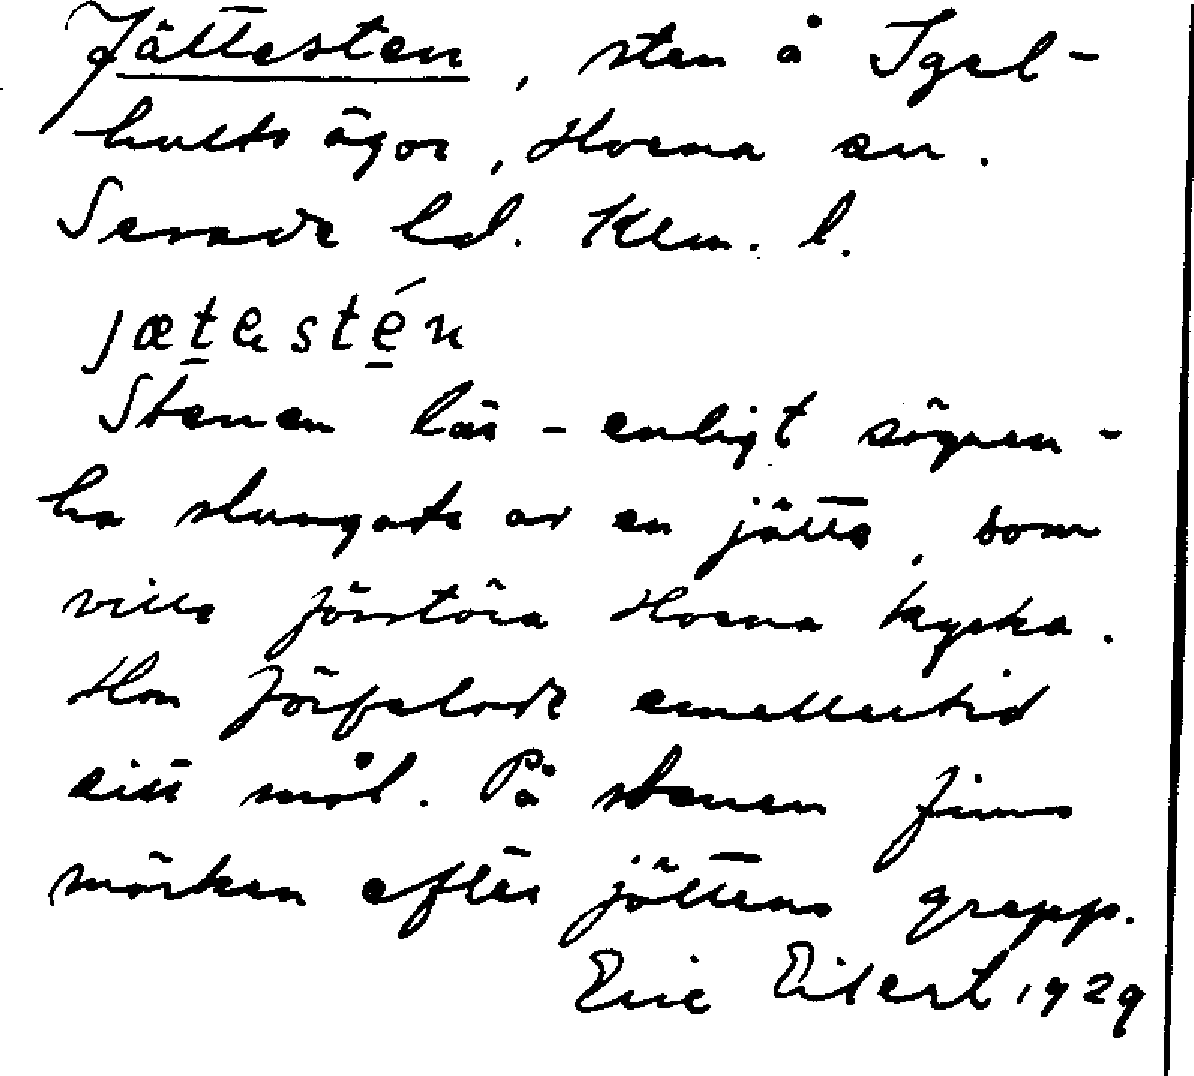 Jättesten, sten å Igel-
hults ägor, Horna sn.
Servade hd. Krm. l.
jætestén
Stenen lär - enligt sägnen -
ha slungats av en jätte, som
ville förstöra Horna kyrka.
Hon förfelade emellertid
sitt mål. På stenen finns
märken efter jättens grepp.
Eric Eilert 1929